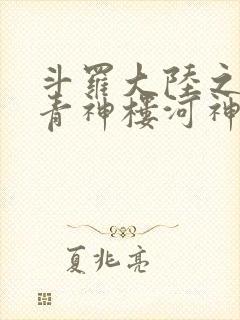 斗羅大陸之
青神樓河神
夏兆亮